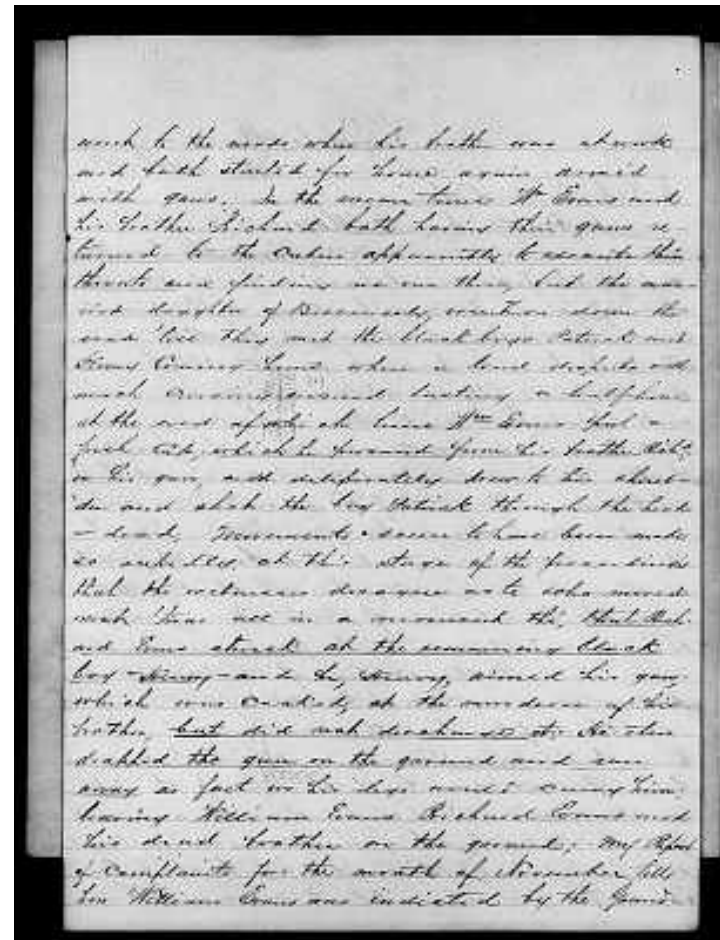 went to the woods where his brother was at work
and both started for home again armed
with guns. In the mean time Wm Evans and
his brother Richard both having their guns re-
turned to the cabin apparently to execute their
threats and finding no one there, but the mar-
ried daughter of went on down the
road 'till they met the black boys Patrick and
Henry coming home when a loud dispute and
much ensued lasting a half hour
at the end of which time Wm Evans put a
fresh cap, which he procured from his brother Richd
on his gun, and deliberately drew to his shoul-
der and shot the boy Patrick through the head
- dead, Movements seem to have been made
so rapidly at this stage of the proceedings
that the witnesses disagree as to who moved
next 'twas all in a moment tho', that Rich-
ard Evans struck at the remaining black
boy - Henry - and he, Henry, aimed his gun
which was cocked, at the murderer of his
brother, but did not discharge it. He then
dropped the gun on the ground and ran
away as fast as his legs would carry him
leaving William Evans Richard Evans and
his dead brother on the ground; My Report
of Complaints for the month of November tells
how William Evans was indicted by the Grand